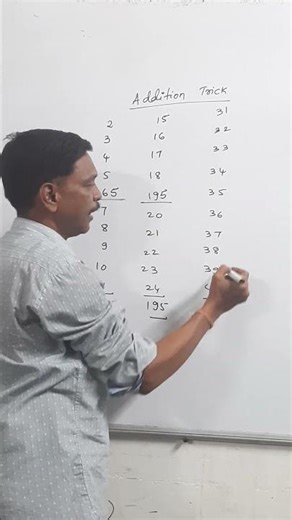 Addition Trick
2 15 31
3 16 32
4 17 33
5 18 34
65 195 35
7 20 36
8 21 37
9 22 38
10 23
24
195